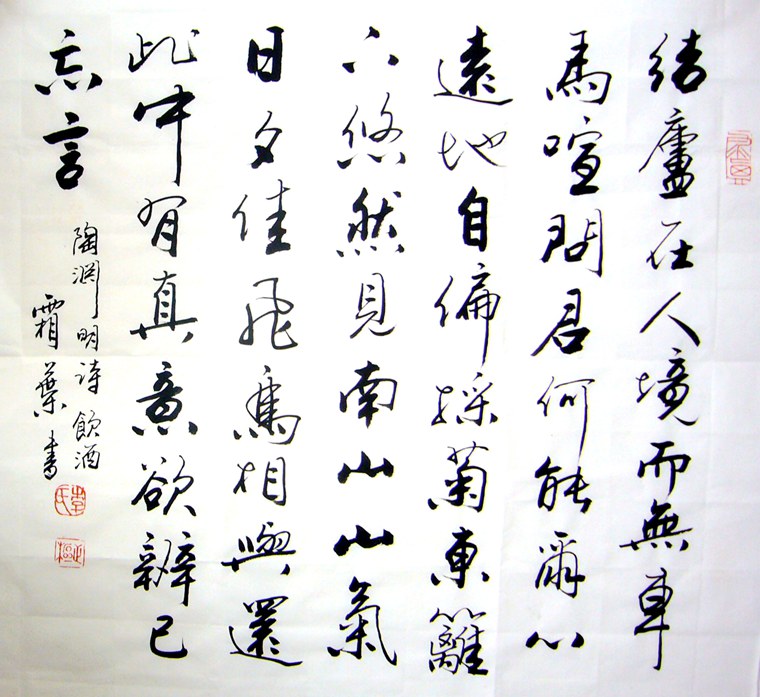 結廬在人境而無車
馬喧問君何能爾心
遠地自偏採菊東籬
下悠然見南山山氣
日夕佳飛鳥相與還
此中有真意欲辨已
忘言
陶淵明詩飲酒
霜葉書